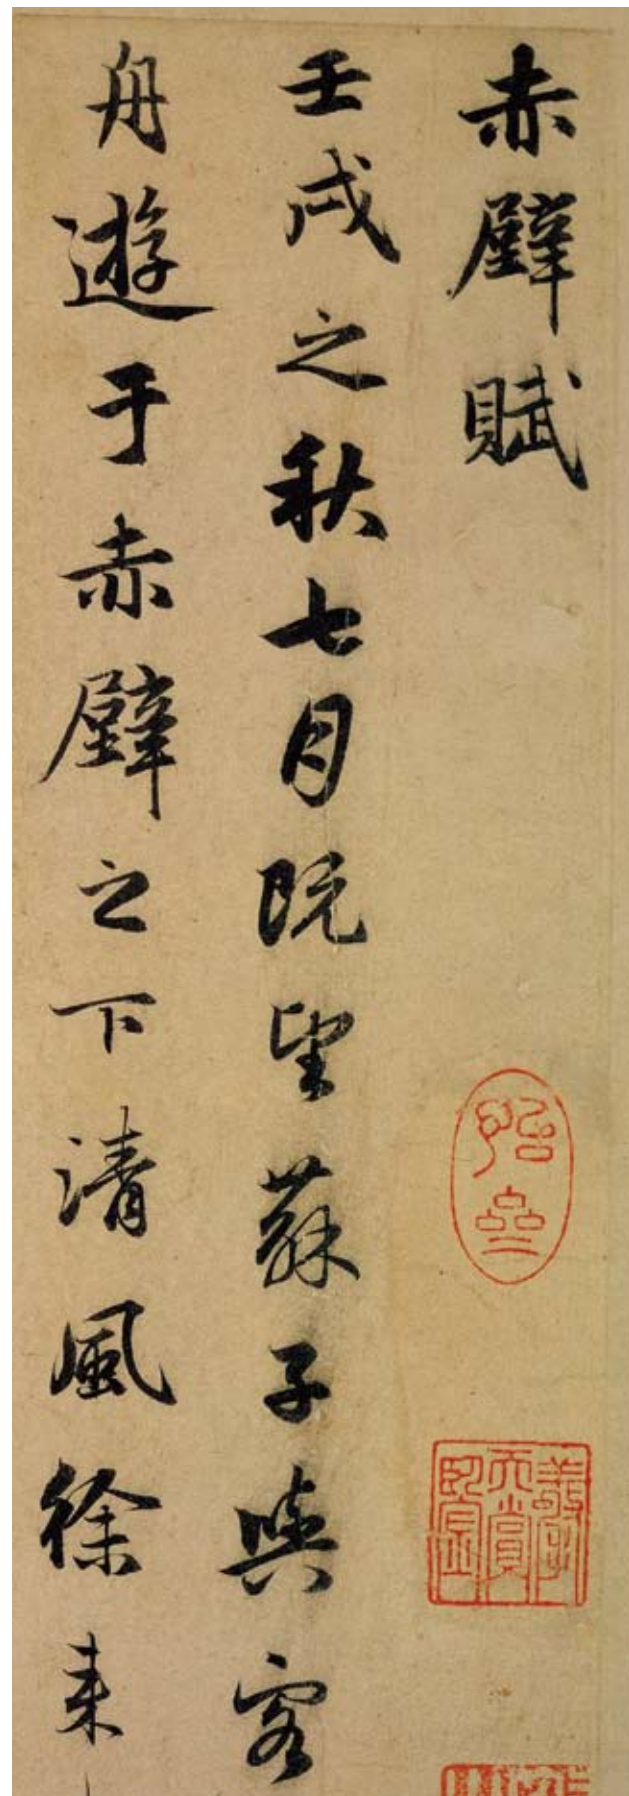 赤壁賦
壬戌之秋七月既望蘇子與客
舟遊于赤壁之下清風徐来